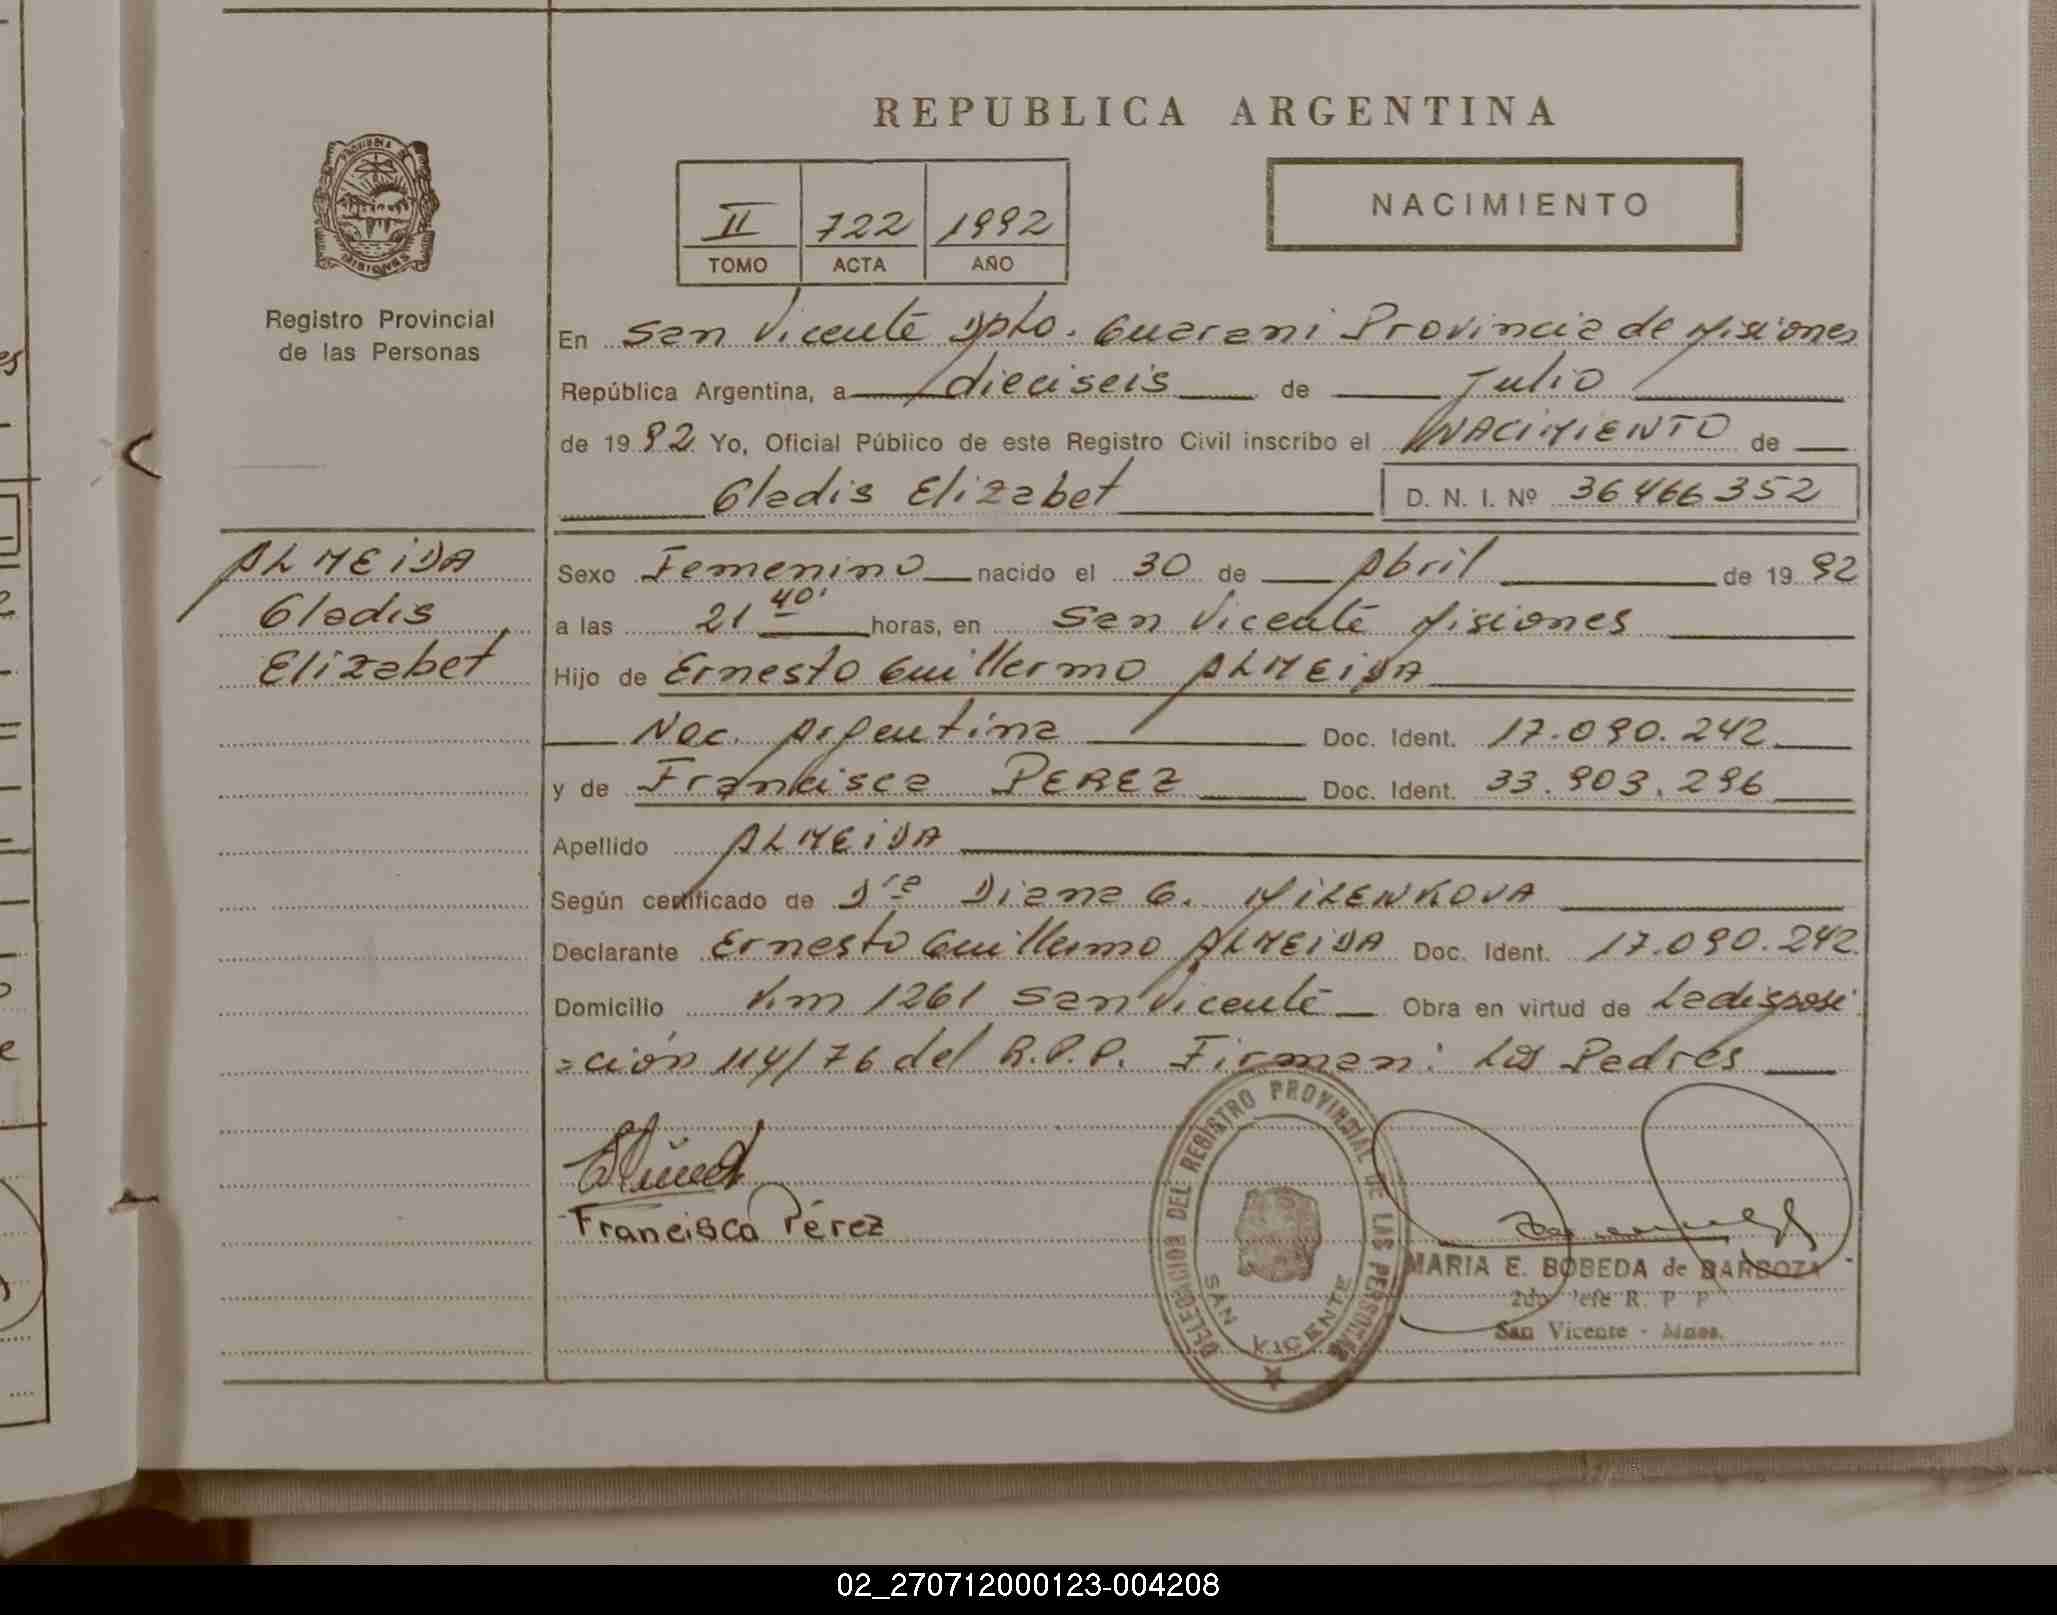 REPUBLICA ARGENTINA
PROVINCIA DE
MISIONES
Registro Provincial
de las Personas
II 722 1992
TOMO ACTA AÑO
NACIMIENTO
En San Vicente Dpto. Guarani Provincia de Misiones
República Argentina, a dieciseis de Julio
de 1992 Yo, Oficial Público de este Registro Civil inscribo el NACIMIENTO de
Gladis Elizabet D. N. I. Nº 36466352
ALMEIDA
Gladis
Elizabet
Sexo Femenino nacido el 30 de Abril de 1992
a las 21 40' horas, en San Vicente Misiones
Hijo de Ernesto Guillermo ALMEIDA
Nac. Argentina Doc. Ident. 17.090.242
y de Francisca PEREZ Doc. Ident. 33.903.296
Apellido ALMEIDA
Según certificado de Dra Diana G. MILENKOVA
Declarante Ernesto Guillermo ALMEIDA Doc. Ident. 17.090.242
Domicilio Km 1261 San Vicente Obra en virtud de La disposi
=ción 114/76 del R.P.P. Firman: Los Padres
Francisca Pérez
DELEGACION DEL REGISTRO PROVINCIAL DE LAS PERSONAS
SAN VICENTE
MARIA E. BOBEDA de BARBOZA
2do Jefe R. P. P
San Vicente - Mnes.
02_270712000123-004208